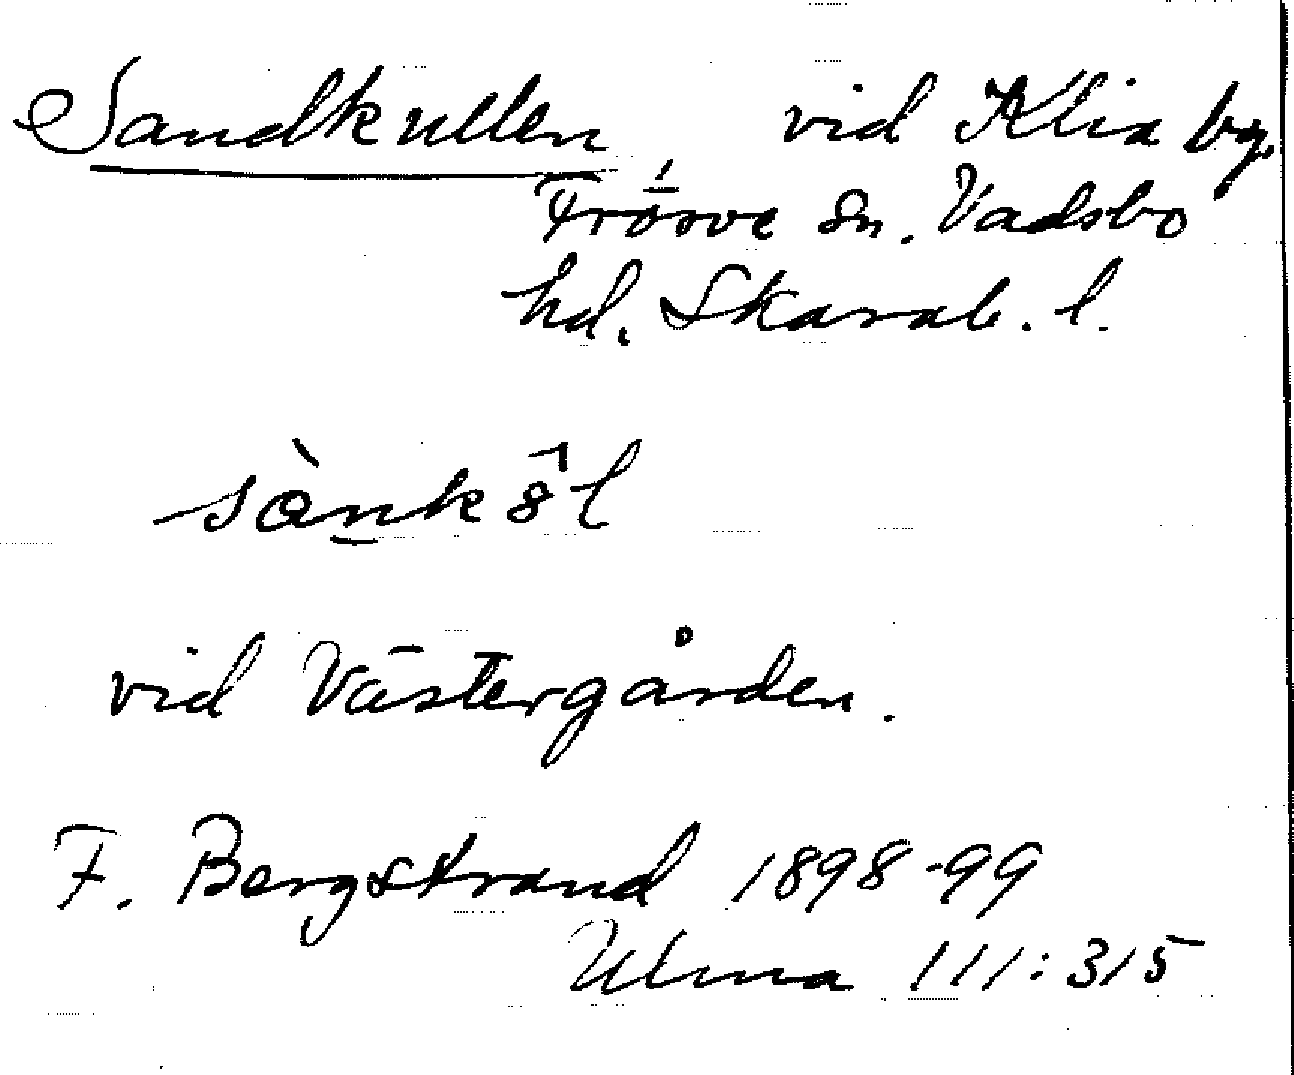 Sandkullen vid Klia by,
Frösve sn. Vadsbo
hd. Skarab. l.
sànkö́l
vid Västergården.
F. Bergstrand 1898-99
Ulma 111:315